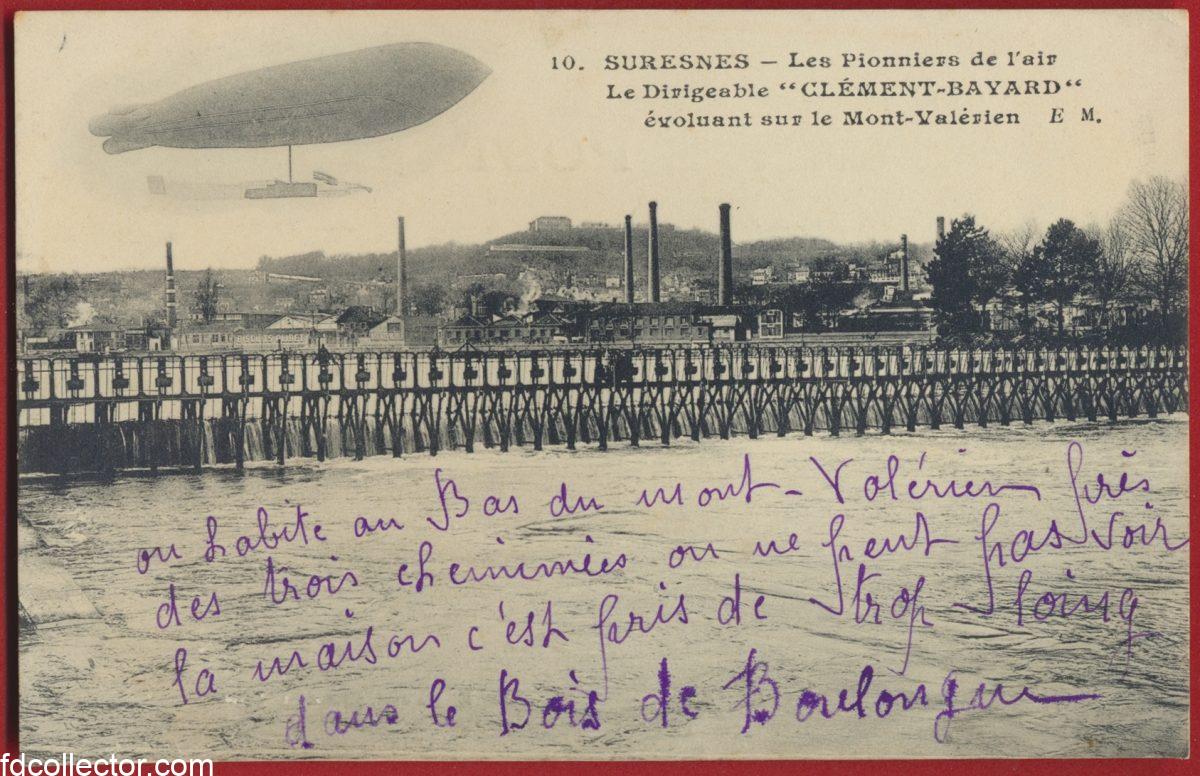 10. SURESNES – Les Pionniers de l'air
Le Dirigeable “CLÉMENT-BAYARD“
évoluant sur le Mont-Valérien E M.
on habite au Bas du mont-Valérien près
des trois cheminnées on ne peut pas voir
la maison c'est pris de trop loing
dans le Bois de Boulongne
fdcollector.com